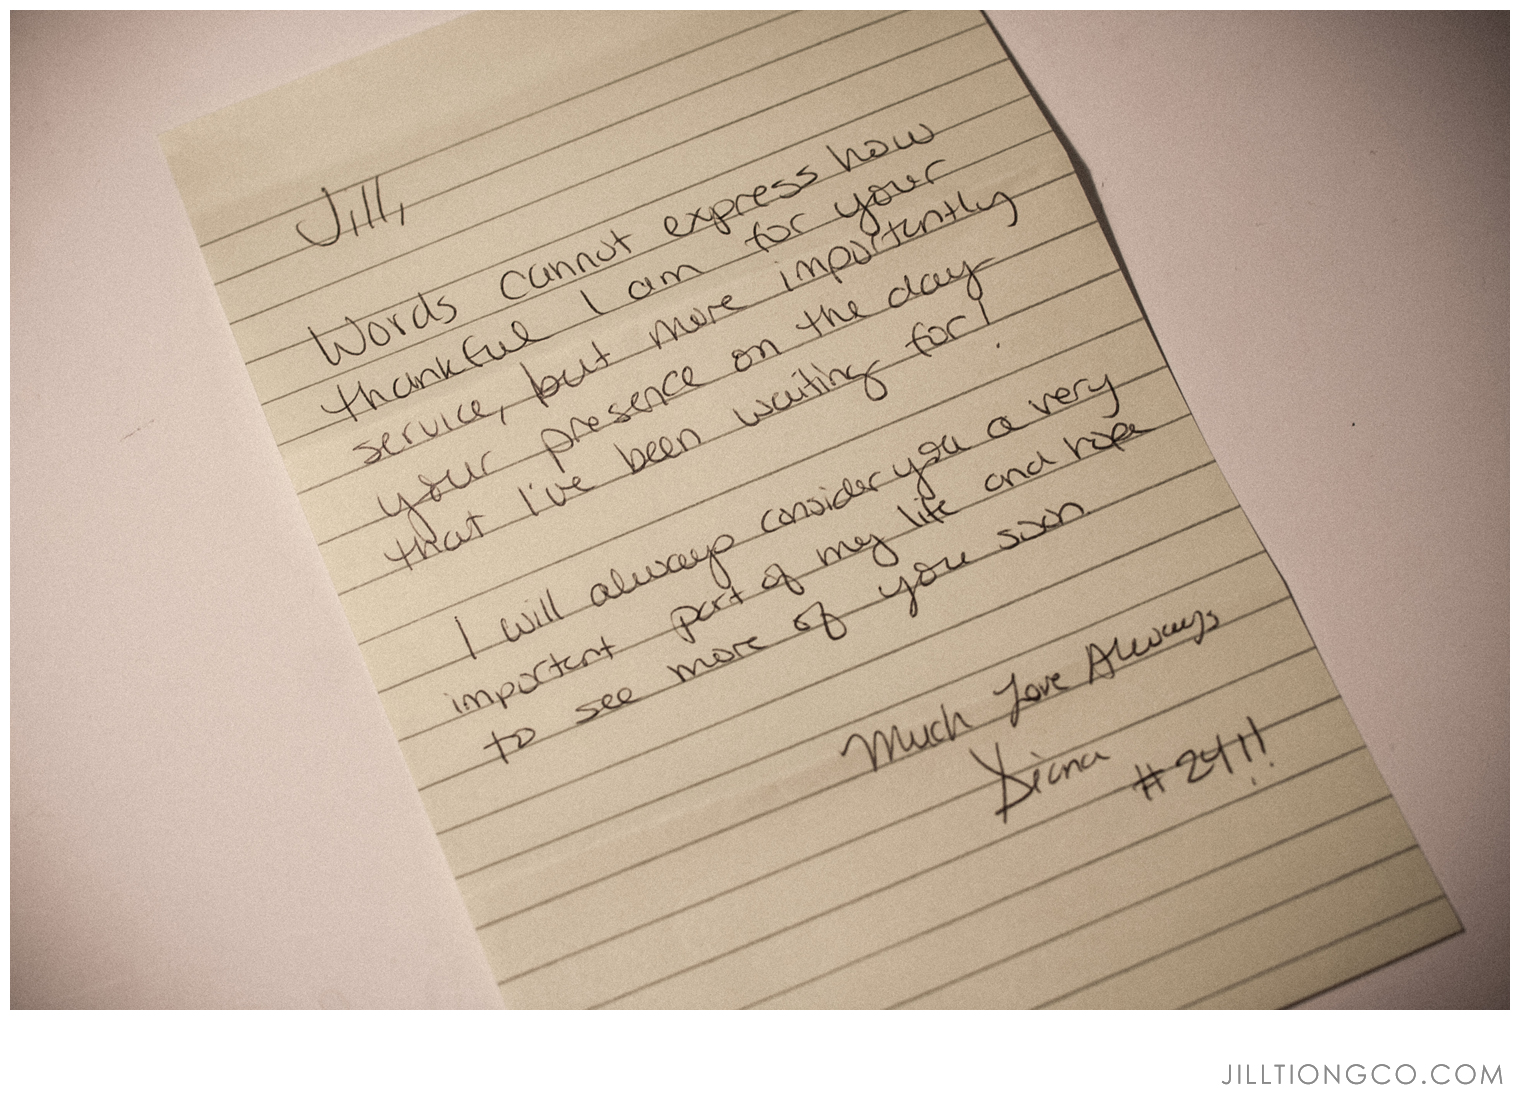 Jill,
Words cannot express how
thankful I am for your
service, but more importantly
your presence on the day
that I've been waiting for!
I will always consider you a very
important part of my life and hope
to see more of you soon
Much Love Always
Diana #24!!
JILLTIONGCO.COM